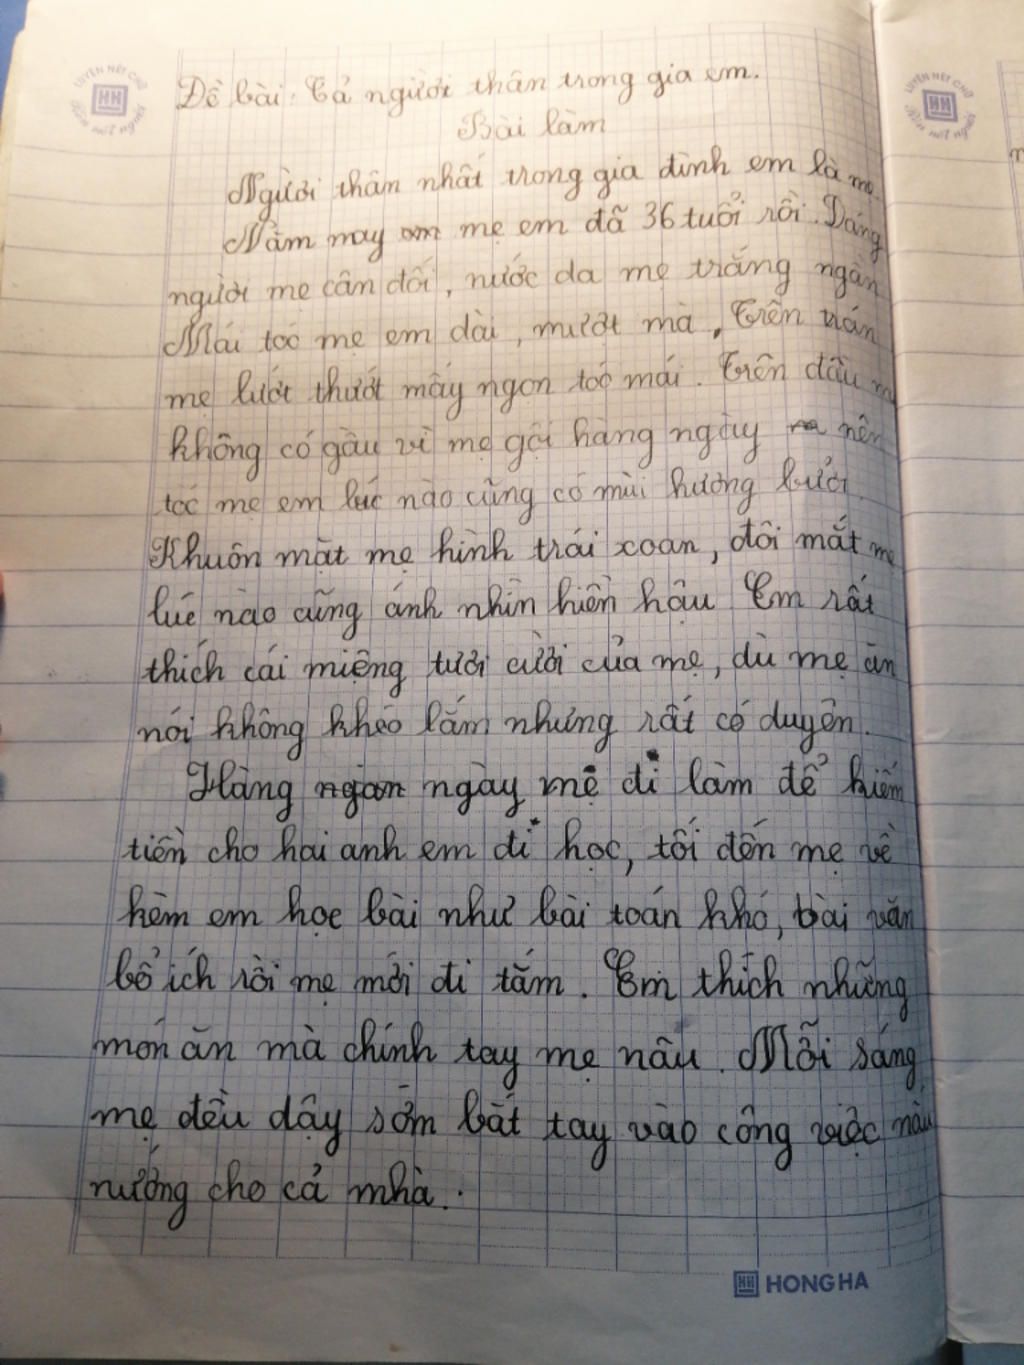 LUYỆN NÉT CHỮ
HH
Rèn nết người
LUYỆN NÉT CHỮ
HH
Rèn nết người
Đề bài: Cả người thân trong gia em.
Bài làm
Người thân nhất trong gia đình em là mẹ
Năm nay em mẹ em đã 36 tuổi rồi. Dáng
người mẹ cân đối, nước da mẹ trắng ngần
Mái tóc mẹ em dài, mượt mà, Trên trán
mẹ lướt thướt mấy ngọn tóc mái. Trên đầu mẹ
không có gầu vì mẹ gội hàng ngày nên
tóc mẹ em lúc nào cũng có mùi hương bưởi.
Khuôn mặt mẹ hình trái xoan, đôi mắt mẹ
lúc nào cũng ánh nhìn hiền hậu Em rất
thích cái miệng tươi cười của mẹ, dù mẹ ăn
nói không khéo lắm nhưng rất có duyên.
Hàng ngàn ngày mẹ đi làm để kiếm
tiền cho hai anh em đi học, tối đến mẹ về
kèm em học bài như bài toán khó, bài văn
bổ ích rồi mẹ mới đi tắm. Em thích những
món ăn mà chính tay mẹ nấu. Mỗi sáng
mẹ đều dậy sớm bắt tay vào công việc nấu
nướng cho cả nhà.
HH HONG HA